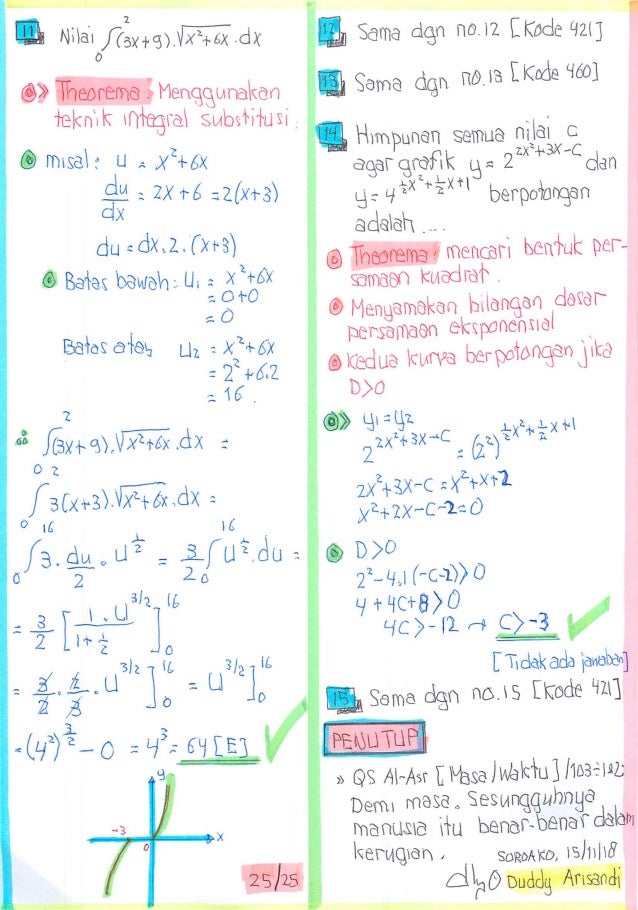 11 Nilai ∫₀² (3x+9).√x²+6x .dx
Theorema: Menggunakan
teknik integral substitusi:
misal: u = x²+6x
du/dx = 2x+6 = 2(x+3)
du = dx.2.(x+3)
Batas bawah: u₁ = x²+6x
= 0+0
= 0
Batas atas, u₂ = x²+6x
= 2²+6.2
= 16.
∴ ∫₀² (3x+9).√x²+6x .dx =
∫₀² 3(x+3).√x²+6x .dx =
∫₀¹⁶ 3.du/2 . u^½ = 3/2 ∫₀¹⁶ u^½ .du =
= 3/2 [1.u^3/2 / 1+½]₀¹⁶
= 3/2 . 2/3 . u^3/2]₀¹⁶ = u^3/2]₀¹⁶
= (4²)^3/2 - 0 = 4³ = 64 [E]
y
-3 0 x
25/25
12 Sama dgn no.12 [Kode 421]
13 Sama dgn no.13 [Kode 460]
14 Himpunan semua nilai c
agar grafik y = 2^2x²+3x-c dan
y = 4^½x²+½x+1 berpotongan
adalah ....
Theorema: mencari bentuk per-
samaan kuadrat.
Menyamakan bilangan dasar
persamaan eksponensial
Kedua kurva berpotongan jika
D>0
y₁ = y₂
2^2x²+3x-c = (2²)^½x²+½x+1
2x²+3x-c = x²+x+2
x²+2x-c-2=0
D>0
2²-4.1(-c-2)>0
4+4c+8>0
4c>-12 → c>-3
[Tidak ada jawaban]
15 Sama dgn no.15 [Kode 421]
PENUTUP
» QS Al-Asr [Masa/Waktu]/103:1&2:
Demi masa. Sesungguhnya
manusia itu benar-benar dalam
kerugian.
SOROAKO, 15/11/18
Duddy Arisandi